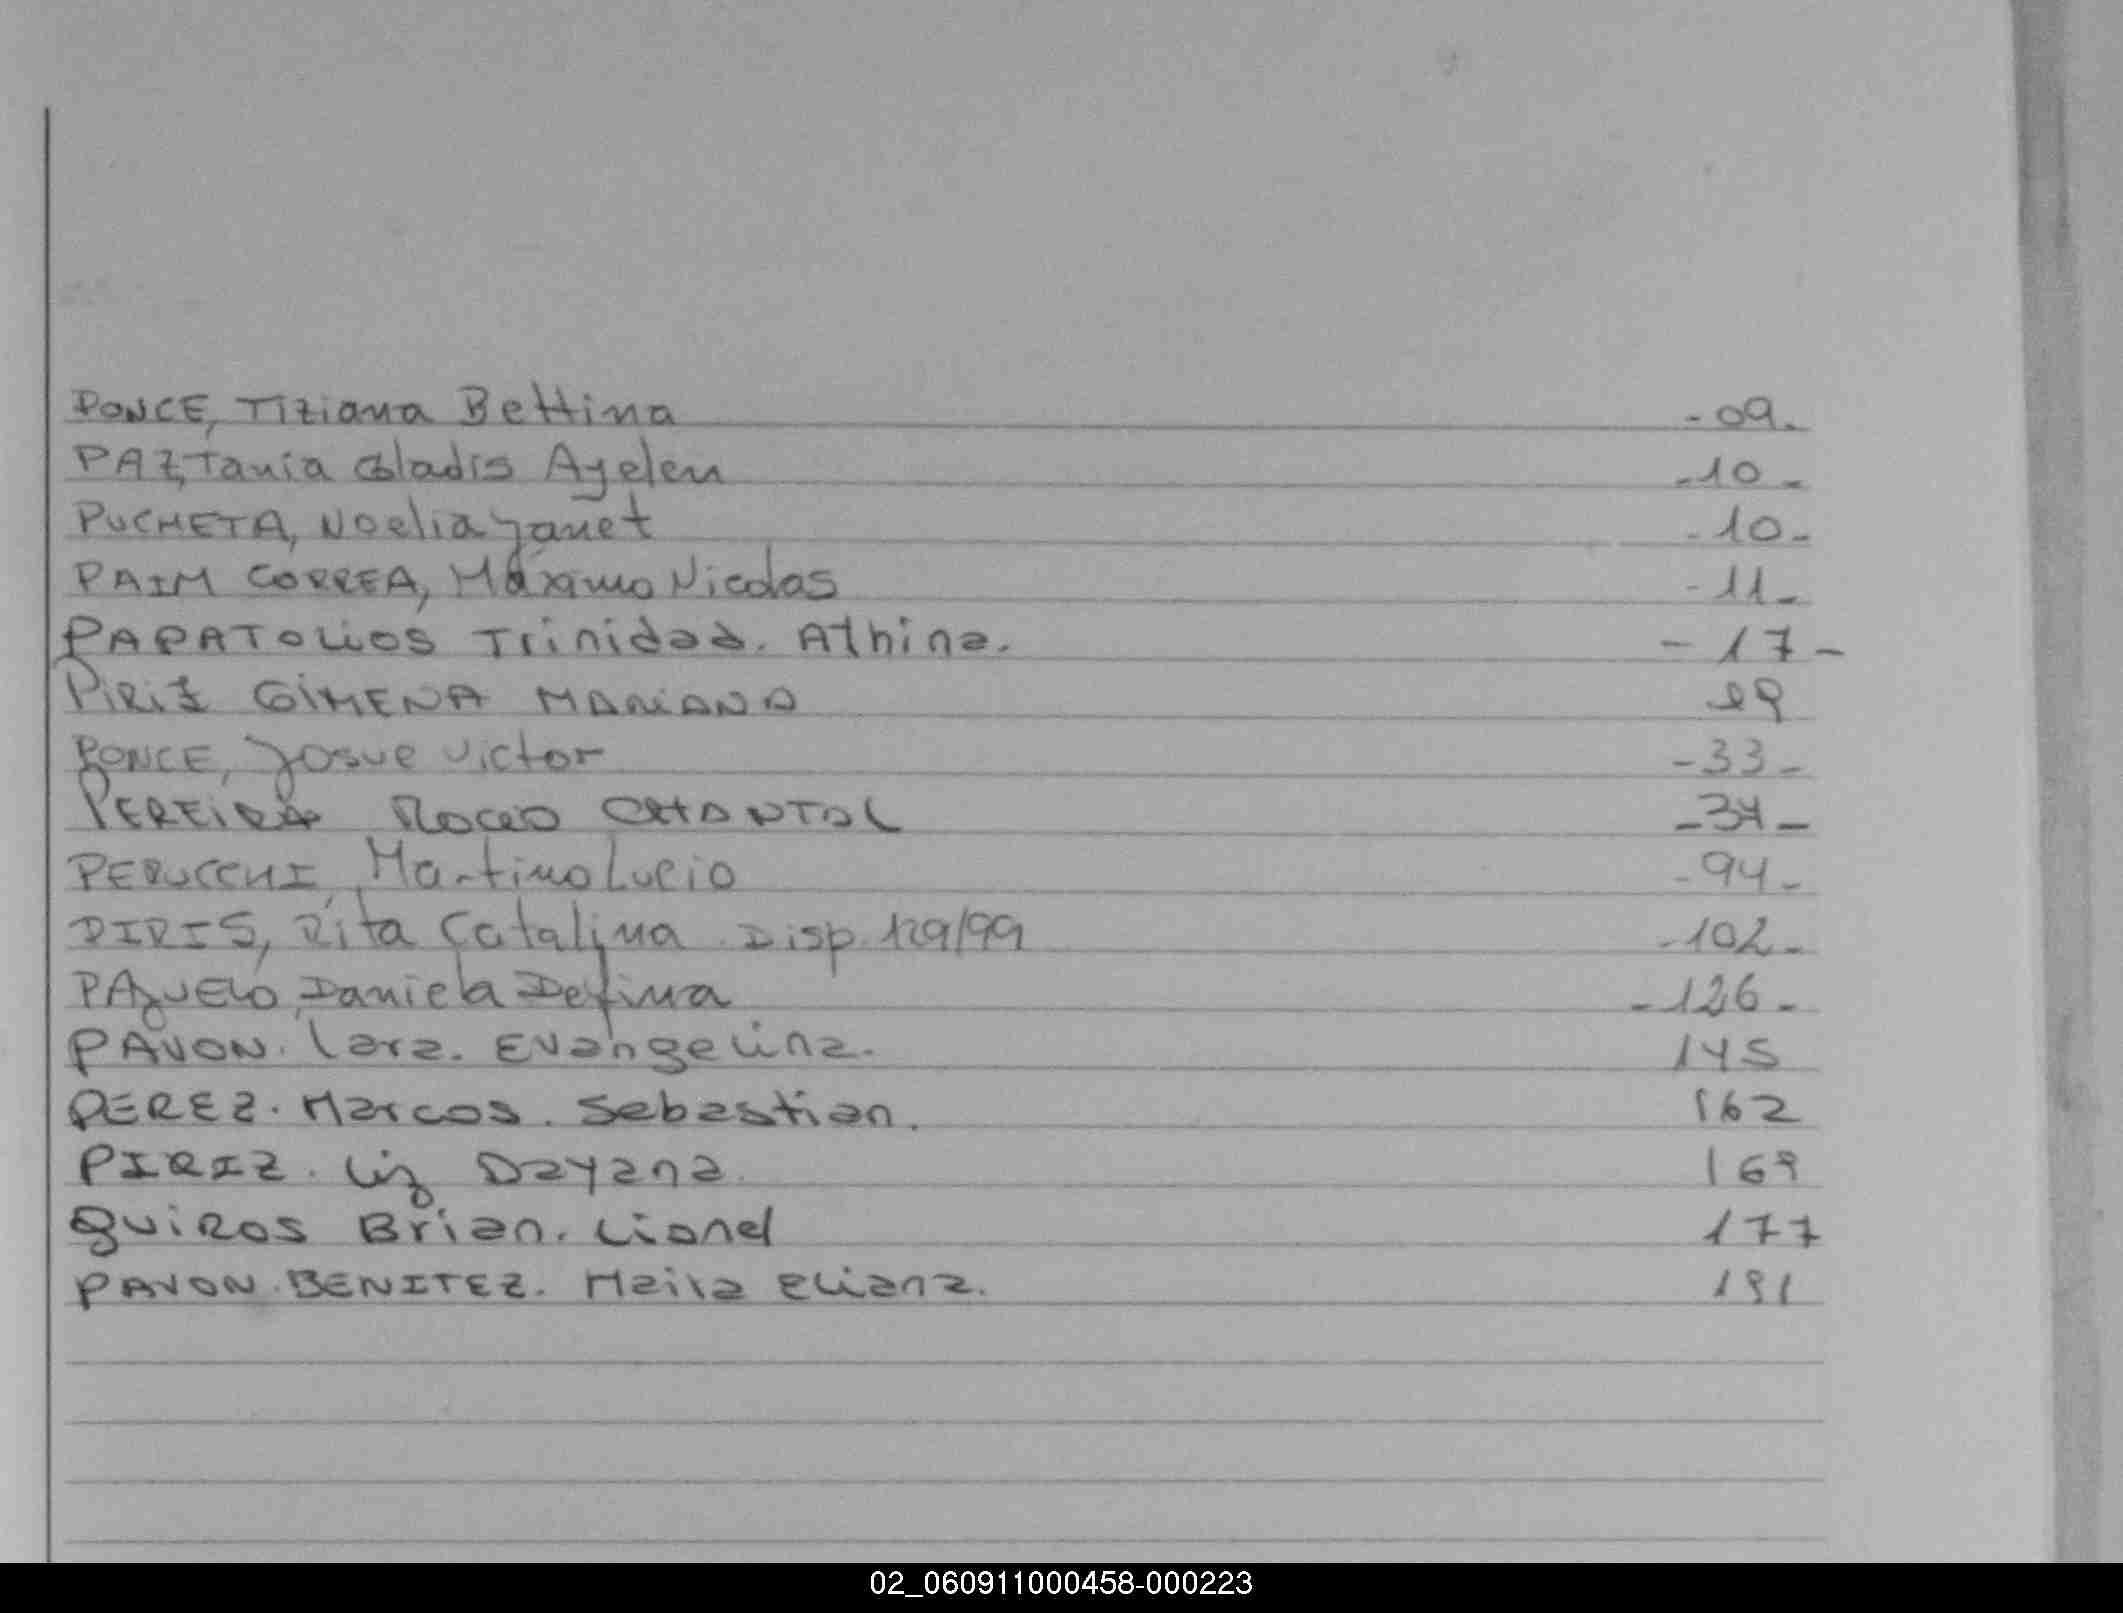 PONCE, Tiziana Bettina -09-
PAZ, Tania Gladis Ayelen -10-
PUCHETA, Noelia Janet -10-
PAIM CORREA, Máximo Nicolas -11-
PAPATOLIOS Trinidad. Athina. -17-
PIRIZ GIMENA MARIANA 29
PONCE, Josue Victor -33-
PEREIRA ROCIO CHANTAL -34-
PERUCCHI, Martino Lucio -94-
PIRIS, Rita Catalina Disp. 129/99 -102-
PAJUELO, Daniela Defina -126-
PAVON. Lara. Evangelina. 145
PEREZ. Marcos. Sebastian. 162
PIRIZ. Liz Dayana. 169
QUIROS Brian. Lionel 177
PAVON. BENITEZ. Maira Eliana. 191
02_060911000458-000223